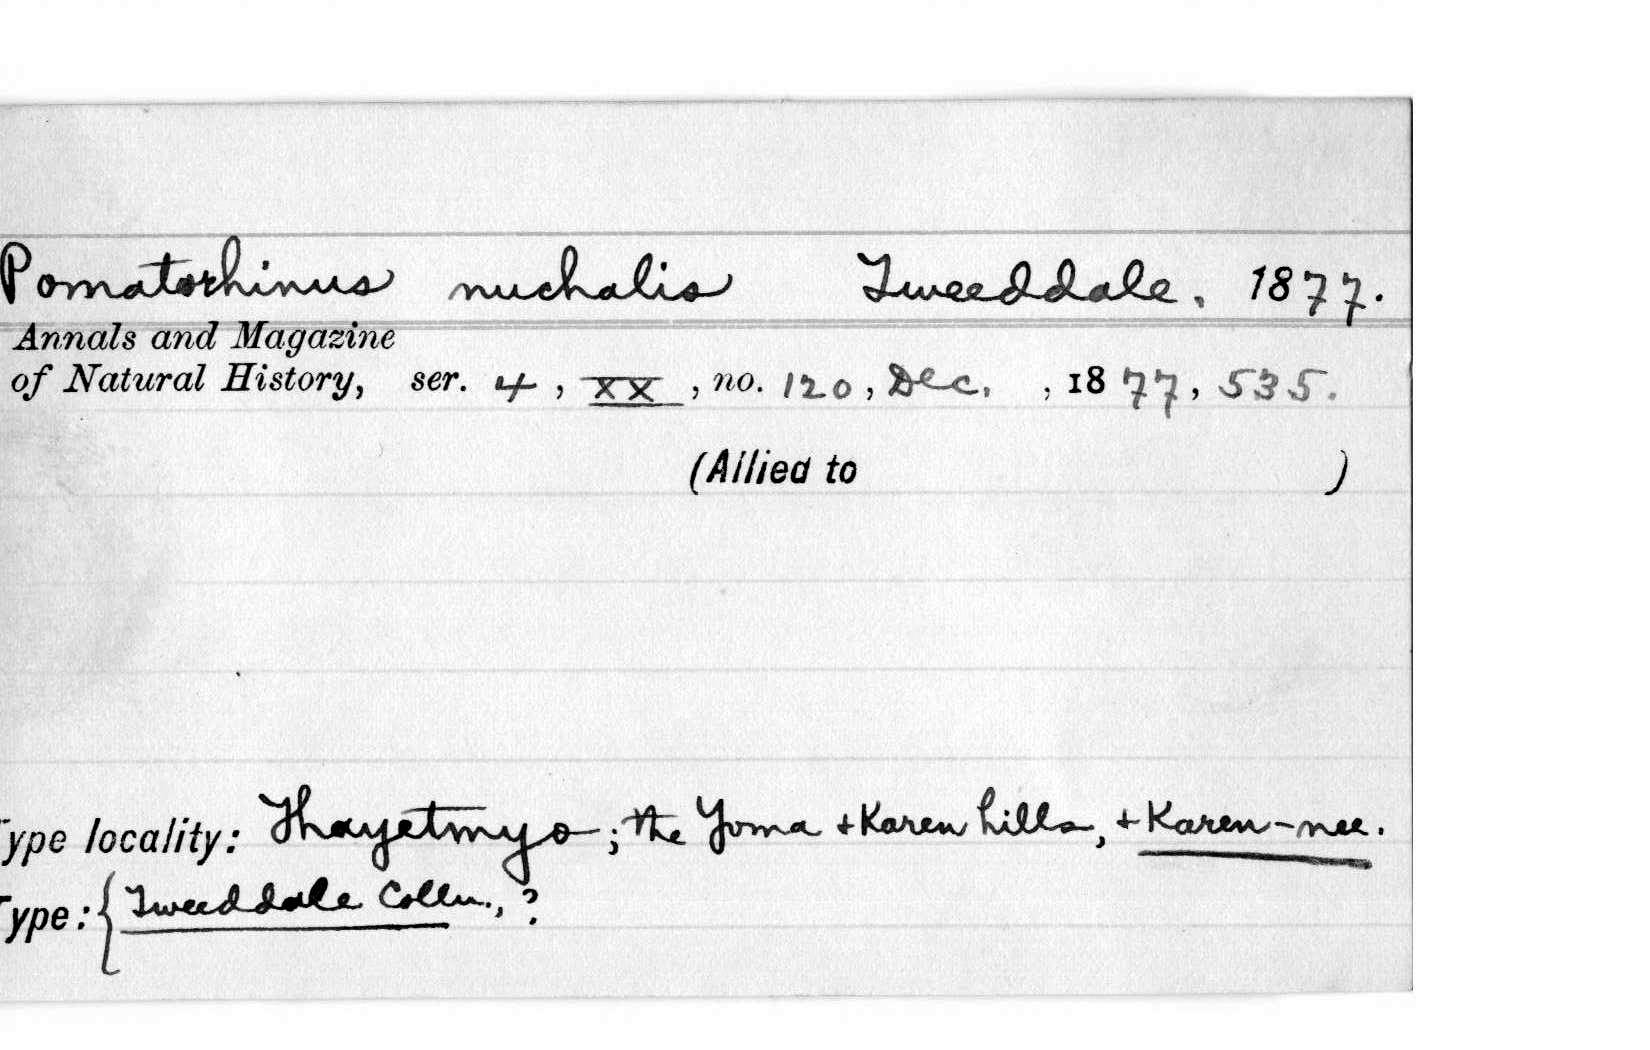 Pomatorhinus nuchalis Tweeddale, 1877.
Annals and Magazine
of Natural History, ser. 4, XX, no. 120, Dec. , 1877, 535.
(Allied to )
Type locality: Thayetmyo; the Yoma + Karen hills, + Karen-nee.
Type: { Tweeddale Colln., ?